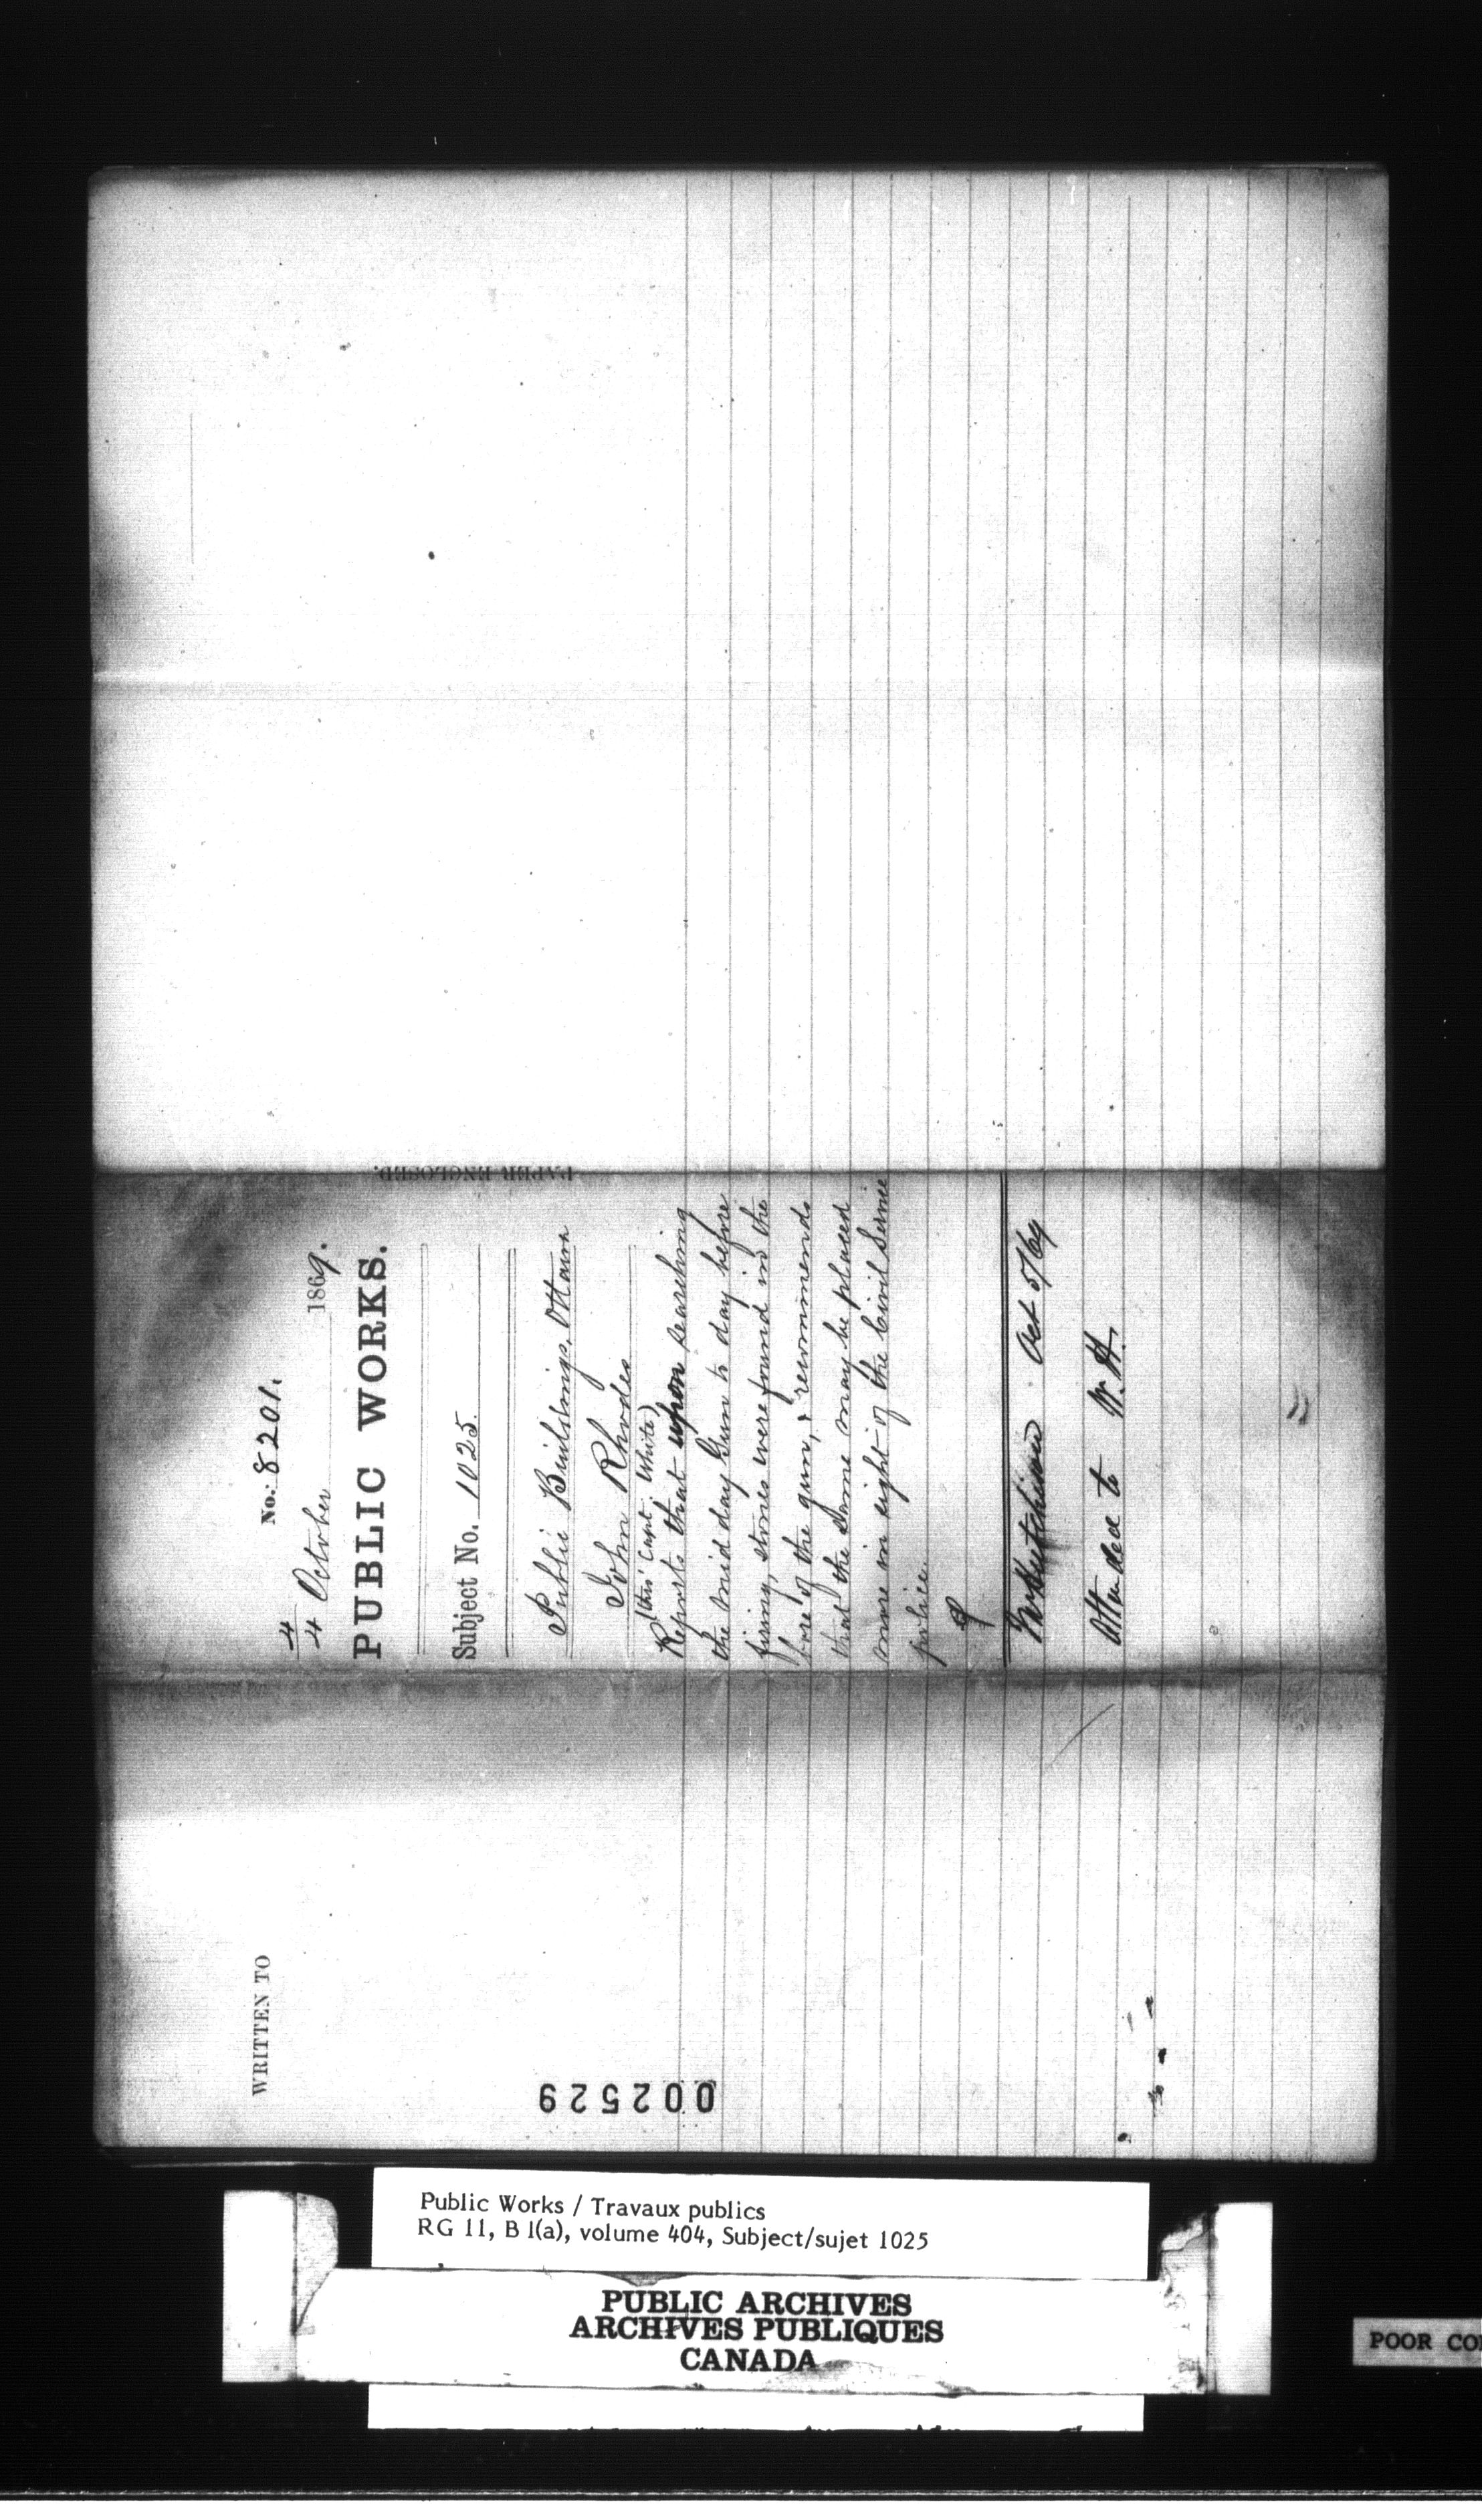 No. 8201.
4
4 October 1869.
PUBLIC WORKS.
Subject No. 1025.
Public Buildings, Ottawa
John Rhodes
(thro' Capt. White)
Reports that upon searching
the mid day Gun to day before
firing, stones were found in the
bore of the gun, & recommends
that the same may be placed
more in sight of the Civil Service
police.
Mr Hutchison Oct 5/69
Attended to W.H.
PAPER ENCLOSED.
WRITTEN TO
002529
Public Works / Travaux publics
RG 11, B 1(a), volume 404, Subject/sujet 1025
PUBLIC ARCHIVES
ARCHIVES PUBLIQUES
CANADA
POOR CO